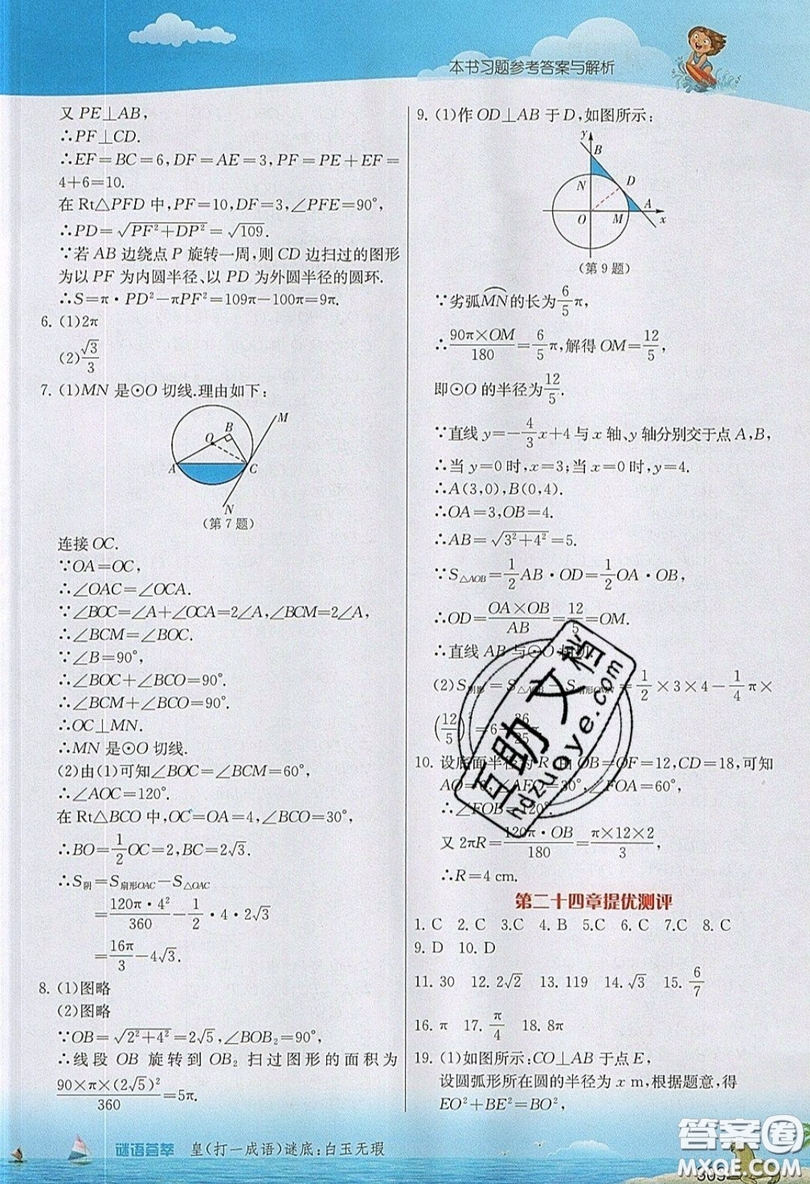 本书习题参考答案与解析
又 PE⊥AB,
∴PF⊥CD.
∴EF=BC=6,DF=AE=3,PF=PE+EF=
4+6=10.
在 Rt△PFD 中,PF=10,DF=3,∠PFE=90°,
∴PD=√(PF²+DP²)=√109.
∵若 AB 边绕点 P 旋转一周,则 CD 边扫过的图形
为以 PF 为内圆半径、以 PD 为外圆半径的圆环.
∴S=π·PD²-πPF²=109π-100π=9π.
6. (1)2π
(2)√3/3
7. (1)MN 是⊙O 切线.理由如下:
M
B
O
A
C
N
(第 7 题)
连接 OC.
∵OA=OC,
∴∠OAC=∠OCA.
∵∠BOC=∠A+∠OCA=2∠A,∠BCM=2∠A,
∴∠BCM=∠BOC.
∵∠B=90°,
∴∠BOC+∠BCO=90°.
∴∠BCM+∠BCO=90°.
∴OC⊥MN.
∴MN 是⊙O 切线.
(2)由(1)可知∠BOC=∠BCM=60°,
∴∠AOC=120°.
在 Rt△BCO 中,OC=OA=4,∠BCO=30°,
∴BO=1/2 OC=2,BC=2√3.
∴S阴=S扇形OAC-S△OAC
=120π·4²/360-1/2·4·2√3
=16π/3-4√3.
8. (1)图略
(2)图略
∵OB=√(2²+4²)=2√5,∠BOB₂=90°,
∴线段 OB 旋转到 OB₂ 扫过图形的面积为
90×π×(2√5)²/360=5π.
9. (1)作 OD⊥AB 于 D,如图所示:
y
B
N
D
O
M
A
x
(第 9 题)
∵劣弧MN的长为6/5π,
∴90π×OM/180=6/5π,解得 OM=12/5,
即⊙O 的半径为12/5.
∵直线 y=-4/3x+4与 x 轴、y 轴分别交于点 A,B,
∴当 y=0 时,x=3;当 x=0 时,y=4.
∴A(3,0),B(0,4).
∴OA=3,OB=4.
∴AB=√(3²+4²)=5.
∵S△AOB=1/2AB·OD=1/2OA·OB,
∴OD=OA×OB/AB=12/5=OM.
∴直线 AB 与⊙O
(2)S阴影=S△AOB-S扇形OMN=1/2×3×4-1/4π×
(12/5)²=6-36/25
10. 设底面半径为 R,由 OB=OF=12,CD=18,可知
AO=6,∠AFO=30°,∠FOA=60°.
∴∠FOB=
又 2πR=120π·OB/180=π×12×2/3,
∴R=4 cm.
第二十四章提优测评
1. C 2. C 3. C 4. B 5. C 6. C 7. C 8. C
9. D 10. D
11. 30 12. 2√2 13. 119 14. 45 15. 6/7
16. π 17. π/4 18. 8π
19. (1)如图所示:CO⊥AB 于点 E,
设圆弧形所在圆的半径为 x m,根据题意,得
EO²+BE²=BO²,
互助文档
hdzuoye.com
谜语荟萃 皇(打一成语)谜底:白玉无瑕
答案圈
MXQE.COM